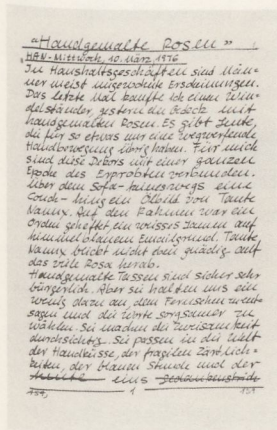 "Handgemalte Rosen"
HAN-Mittwoch, 10. März, 1976
In Haushaltsgeschäften sind Män-
ner meist ungewohnte Erscheinungen.
Das letzte Mal kaufte ich einen Win-
delständer, gestern ein Gedeck mit
handgemalten Rosen. Es gibt Leute,
die für so etwas nur eine wegwerfende
Handbewegung übrig haben. Für mich
sind diese Dekors mit einer ganzen
Epoche des Erprobten verbunden.
Über dem Sofa - keineswegs eine
Couch - hing ein Ölbild von Tante
Nanny. Auf den Rahmen war ein
Orden geheftet, ein weisses Lamm auf
himmelblauem Emailgrund. Tante
Nanny blickt nicht eben gnädig auf
das viele Rosa herab.
Handgemalte Tassen sind sicher sehr
bürgerlich. Aber sie halten uns ein
wenig davon an, dem Fernsehen zu ent-
sagen und die Worte sorgsamer zu
wählen. Sie machen die Zweisamkeit
durchsichtig. Sie passen in die Welt
der Handküsse, der fragilen Zärtlich-
keiten, der blauen Stunde und der
eins
1